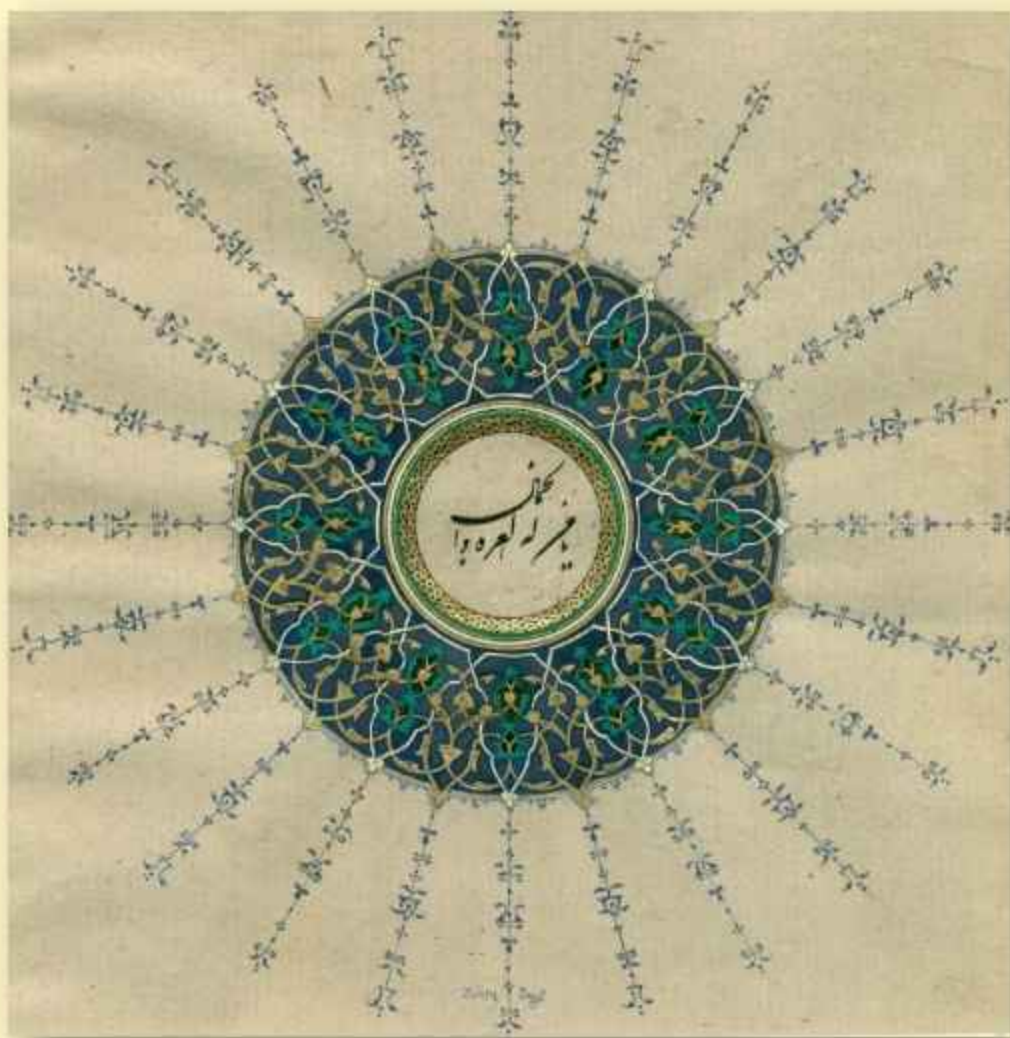 یا من له العزه والجمال